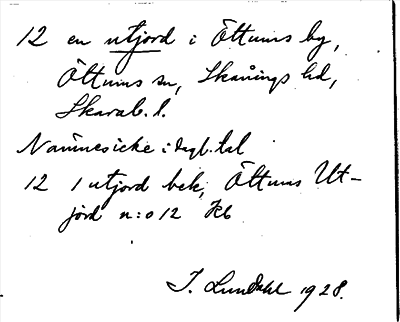 12 en utjord i Öttums by,
Öttums sn, Skånings hd,
Skarab. l.
Namnes icke i dagl. tal
12 1 utjord bek, Öttums Ut-
jord n:o 12 Kb
I. Lundahl 1928.